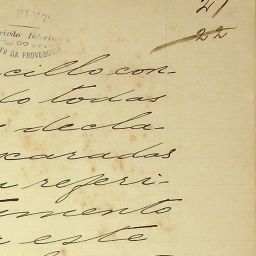 21
22
PINTO
Escrivão Interino
DO
DA PROVEDORIA
cillo con-
do todas
decla-
caradas
a referi-
mento
este